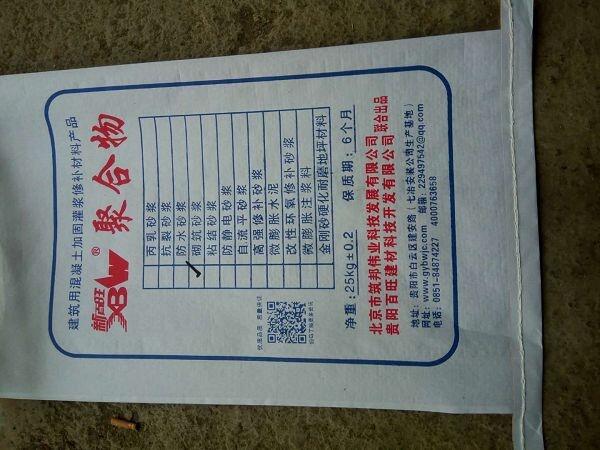 建筑用混凝土加固灌浆修补材料产品
新百旺
XBW®
聚合物
丙乳砂浆
抗裂砂浆
防水砂浆
砌筑砂浆
粘结砂浆
防静电砂浆
自流平砂浆
高强修补砂浆
微膨胀水泥
改性环氧修补砂浆
微膨胀注浆料
金刚砂硬化耐磨地坪材料
优质品质 质量保证
净重：25kg±0.2 保质期：6个月
北京市筑邦伟业科技发展有限公司
贵阳百旺建材科技开发有限公司 联合出品
地址：贵阳市白云区建安路（七冶安装公司生产基地）
网址：www.gybwjc.com 邮箱：229497542@qq.com
电话：0851-84874227 4000763658